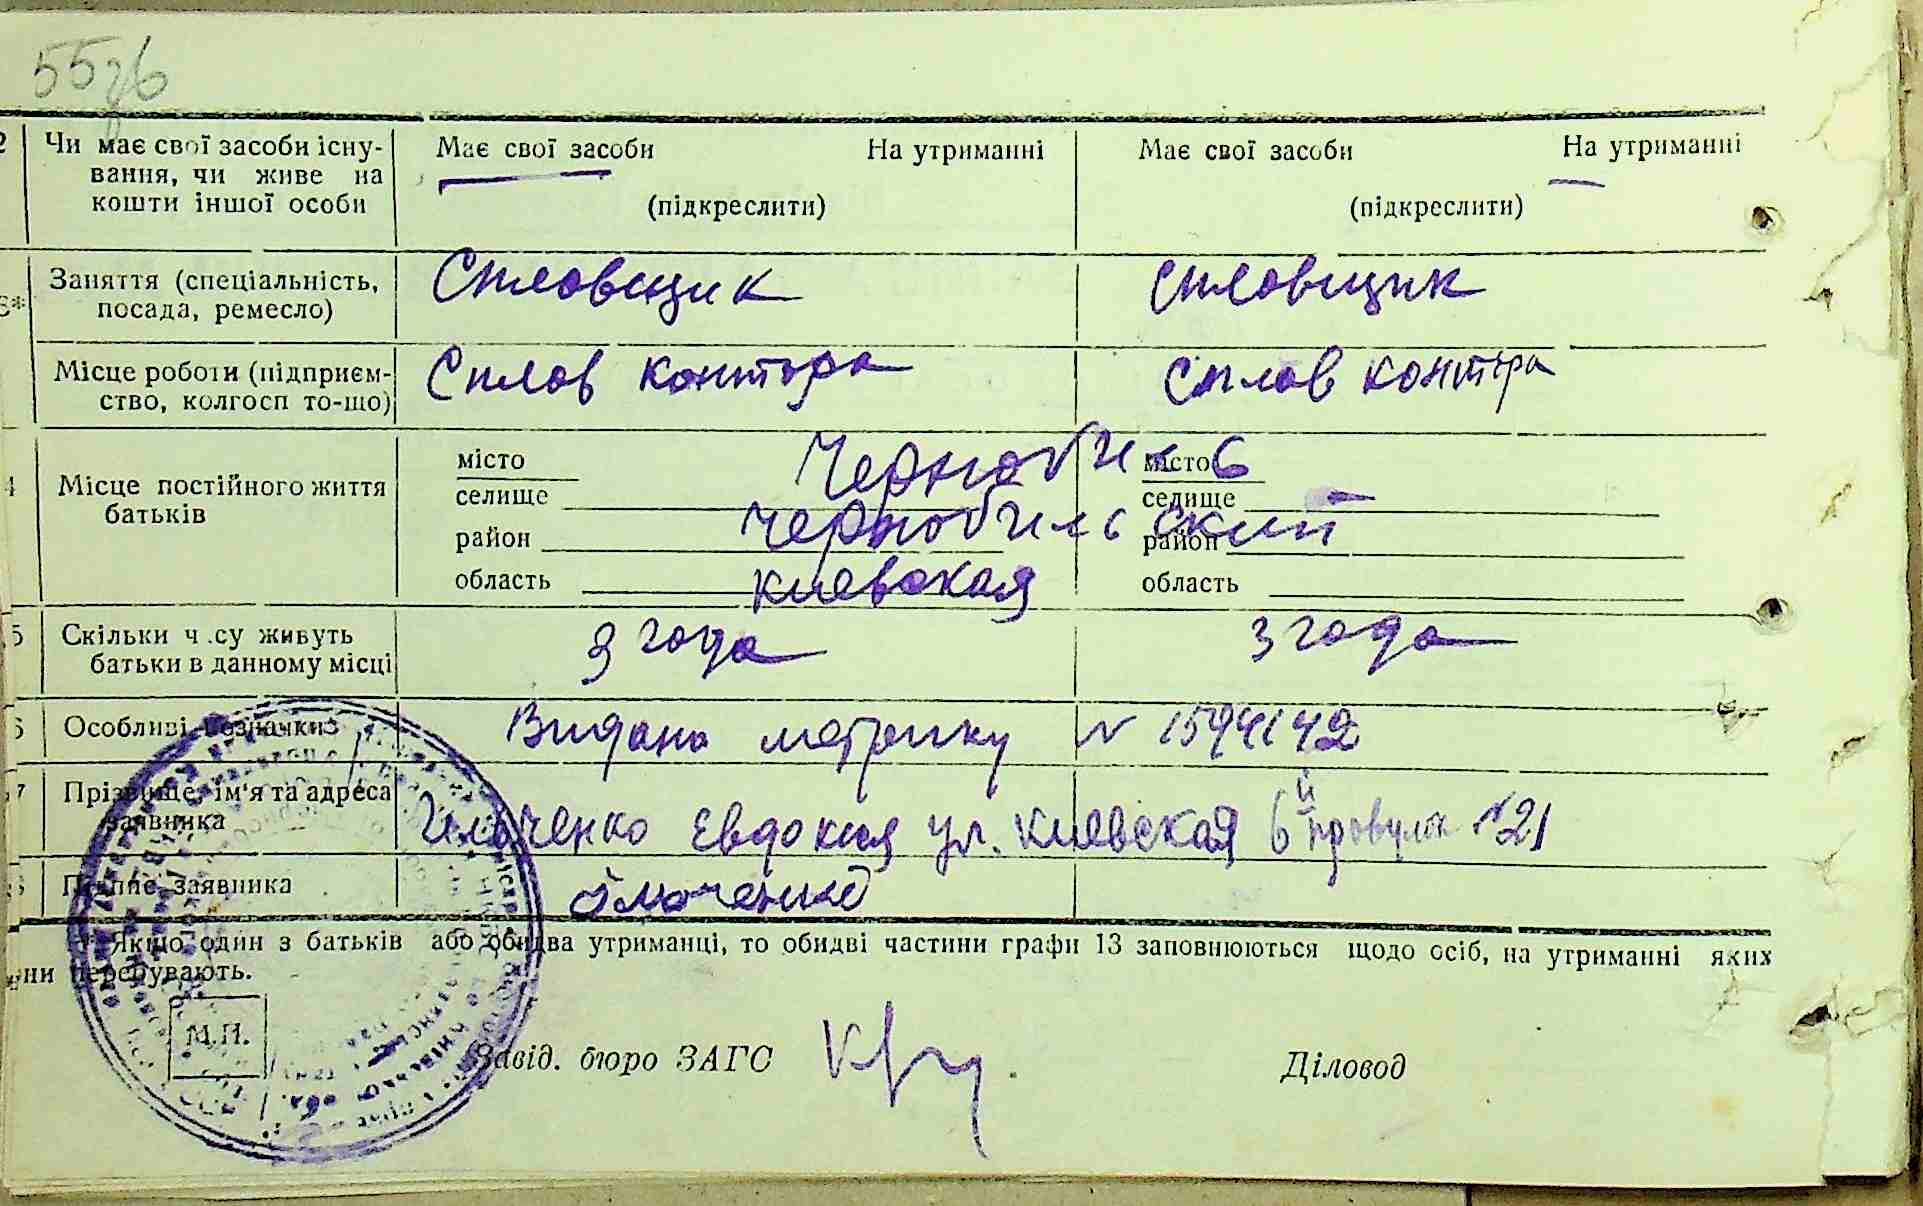 55зв
2 Чи має свої засоби існу- Має свої засоби На утриманні Має свої засоби На утриманні
вання, чи живе на
кошти іншої особи (підкреслити) (підкреслити)
3* Заняття (спеціальність, Сплавщик сплавщик
посада, ремесло)
Місце роботи (підприєм- Сплав контора Сплав контора
ство, колгосп то-що)
4 Місце постійного життя місто Чернобиль місто
батьків селище селище
район чернобильский район
область киевская область
5 Скільки ч су живуть 3 года 3 года
батьки в данному місці
6 Особливі позначки Видано метрику N 1594142
7 Прізвище, ім'я та адреса
заявника Ильченко Евдокия ул. Киевская 6й провулок N21
Підпис заявника
* Якщо один з батьків або обидва утриманці, то обидві частини графи 13 заповнюються щодо осіб, на утриманні яких
ни перебувають.
М.П.
Завід. бюро ЗАГС Діловод